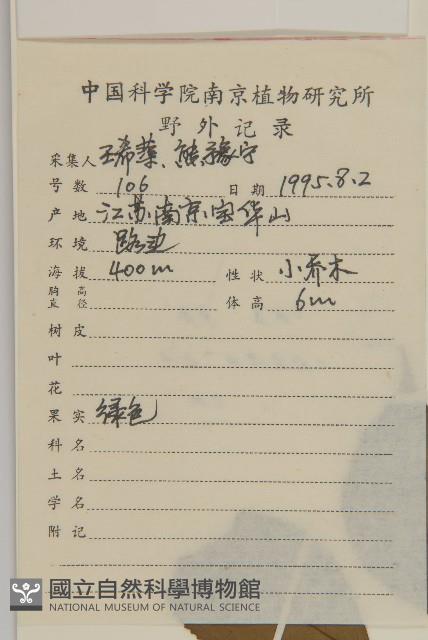 中国科学院南京植物研究所
野外记录
采集人 王希蕖、熊豫宁
号数 106 日期 1995.8.2
产地 江苏南京宝华山
环境 路边
海拔 400m 性状 小乔木
胸高直径 体高 6m
树皮
叶
花
果实 绿色
科名
土名
学名
附记
國立自然科學博物館
NATIONAL MUSEUM OF NATURAL SCIENCE